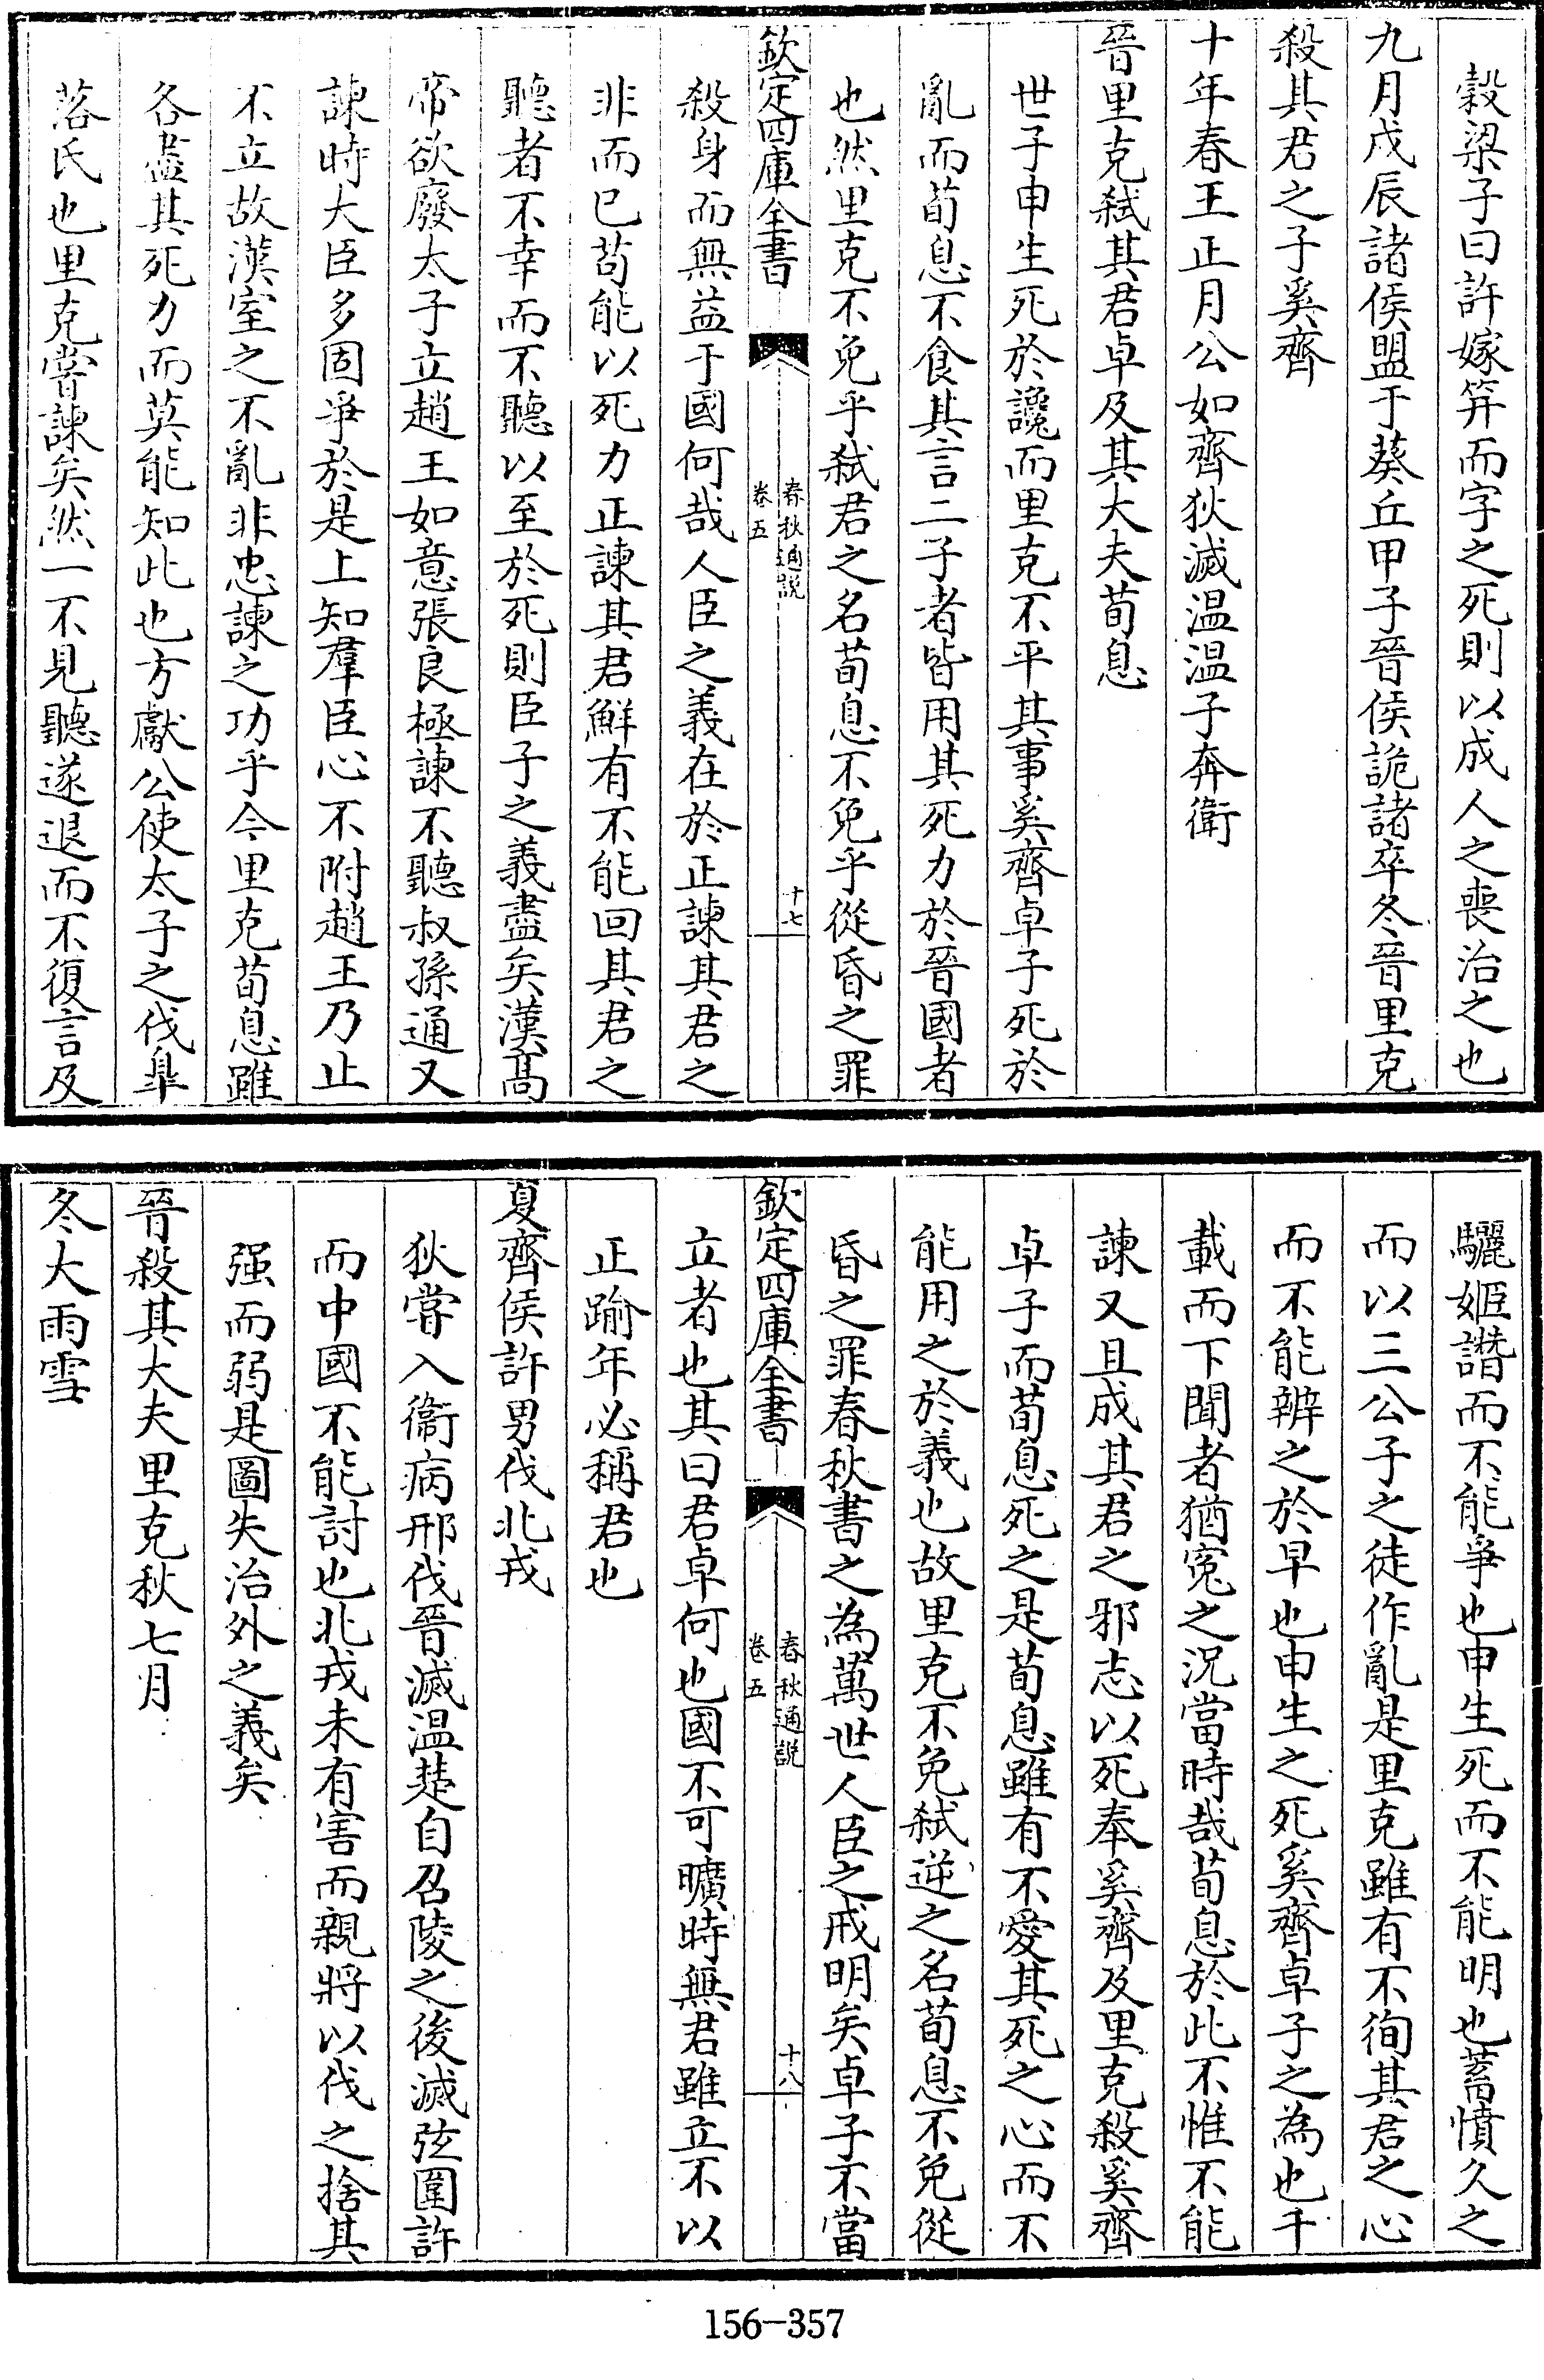 穀梁子曰許嫁笄而字之死則以成人之喪治之也
九月戊辰諸侯盟于葵丘甲子晉侯詭諸卒冬晉里克
殺其君之子奚齊
十年春王正月公如齊狄滅温温子奔衛
晉里克弑其君卓及其大夫荀息
世子申生死於讒而里克不平其事奚齊卓子死於
亂而荀息不食其言二子者皆用其死力於晉國者
也然里克不免乎弑君之名荀息不免乎從昏之罪
欽定四庫全書
春秋通説
卷五
十七
殺身而無益于國何哉人臣之義在於正諫其君之
非而已苟能以死力正諫其君鮮有不能回其君之
聽者不幸而不聽以至於死則臣子之義盡矣漢髙
帝欲廢太子立趙王如意張良極諫不聽叔孫通又
諫時大臣多固爭於是上知羣臣心不附趙王乃止
不立故漢室之不亂非忠諫之功乎今里克荀息雖
各盡其死力而莫能知此也方獻公使太子之伐臯
落氏也里克嘗諫矣然一不見聽遂退而不復言及
驪姬譖而不能爭也申生死而不能明也蓄憤久之
而以三公子之徒作亂是里克雖有不徇其君之心
而不能辨之於早也申生之死奚齊卓子之為也千
載而下聞者猶寃之況當時哉荀息於此不惟不能
諫又且成其君之邪志以死奉奚齊及里克殺奚齊
卓子而荀息死之是荀息雖有不愛其死之心而不
能用之於義也故里克不免弑逆之名荀息不免從
昏之罪春秋書之為萬世人臣之戒明矣卓子不當
欽定四庫全書
春秋通説
卷五
十八
立者也其曰君卓何也國不可曠時無君雖立不以
正踰年必稱君也
夏齊侯許男伐北戎
狄嘗入衞病邢伐晉滅温楚自召陵之後滅弦圍許
而中國不能討也北戎未有害而親將以伐之捨其
强而弱是圖失治外之義矣
晉殺其大夫里克秋七月
冬大雨雪
156-357